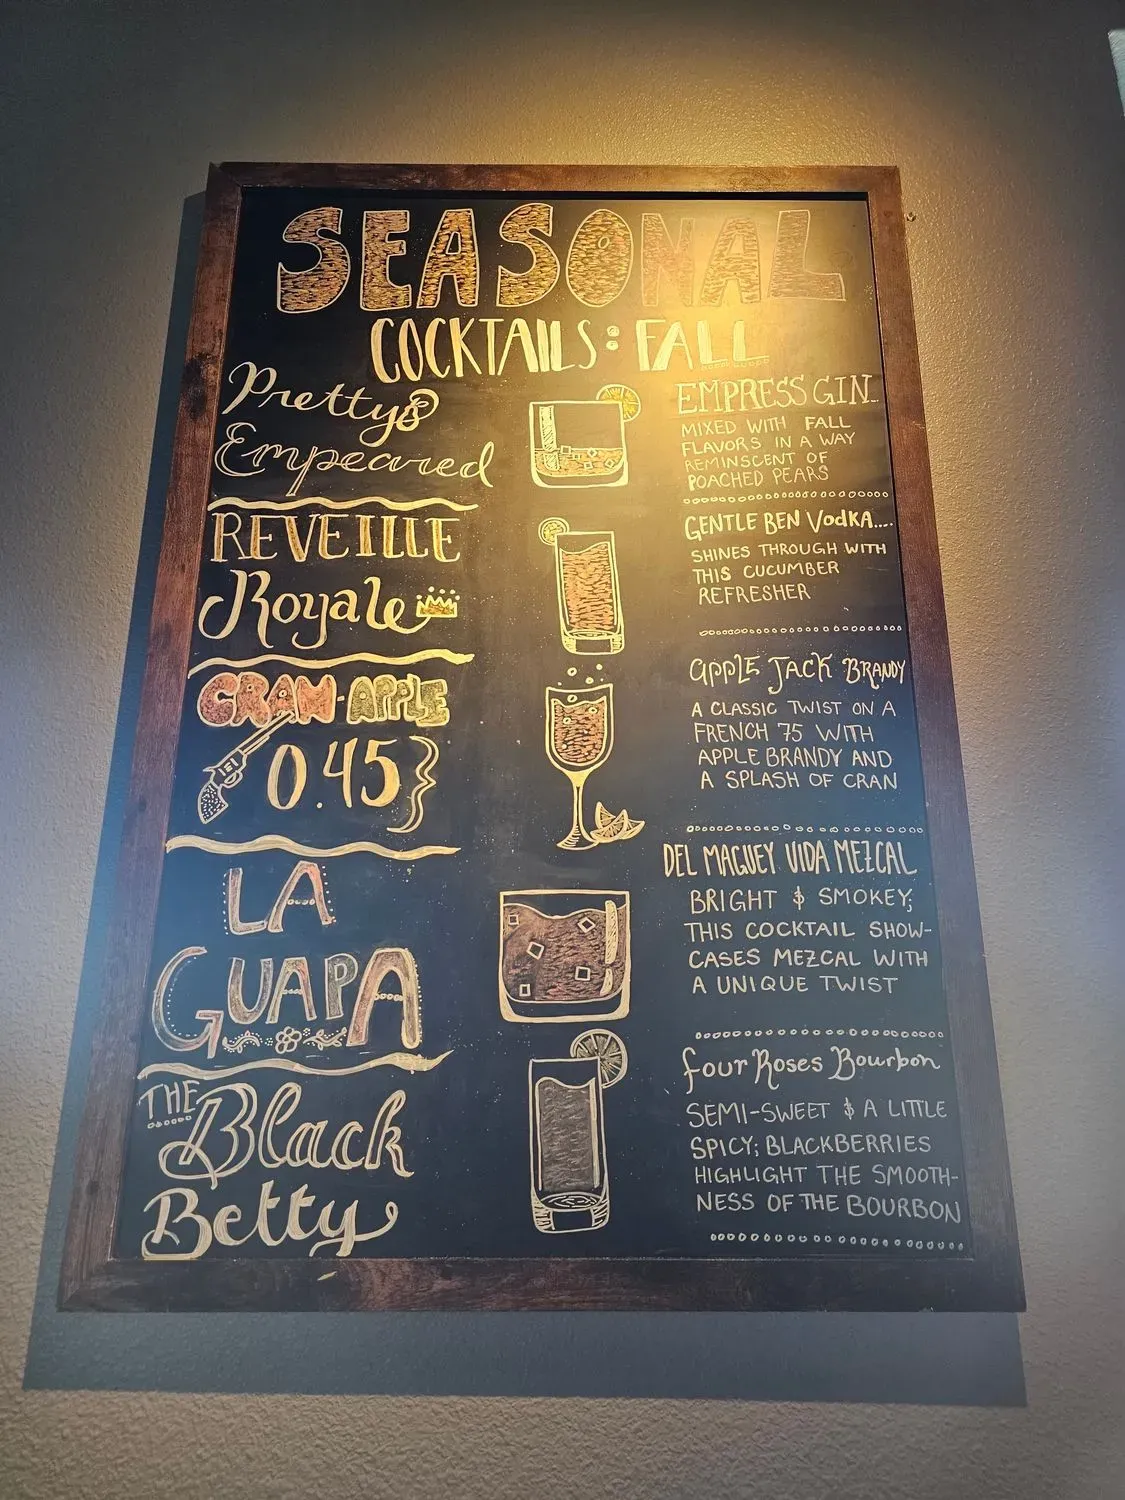 SEASONAL
COCKTAILS: FALL
Pretty &
Empeared
EMPRESS GIN...
MIXED WITH FALL
FLAVORS IN A WAY
REMINSCENT OF
POACHED PEARS
REVEILLE
Royale
GENTLE BEN VODKA....
SHINES THROUGH WITH
THIS CUCUMBER
REFRESHER
CRAN-APPLE
0.45
APPLE JACK BRANDY
A CLASSIC TWIST ON A
FRENCH 75 WITH
APPLE BRANDY AND
A SPLASH OF CRAN
LA
GUAPA
DEL MAGUEY VIDA MEZCAL
BRIGHT & SMOKEY;
THIS COCKTAIL SHOW-
CASES MEZCAL WITH
A UNIQUE TWIST
THE Black
Betty
Four Roses Bourbon
SEMI-SWEET & A LITTLE
SPICY; BLACKBERRIES
HIGHLIGHT THE SMOOTH-
NESS OF THE BOURBON